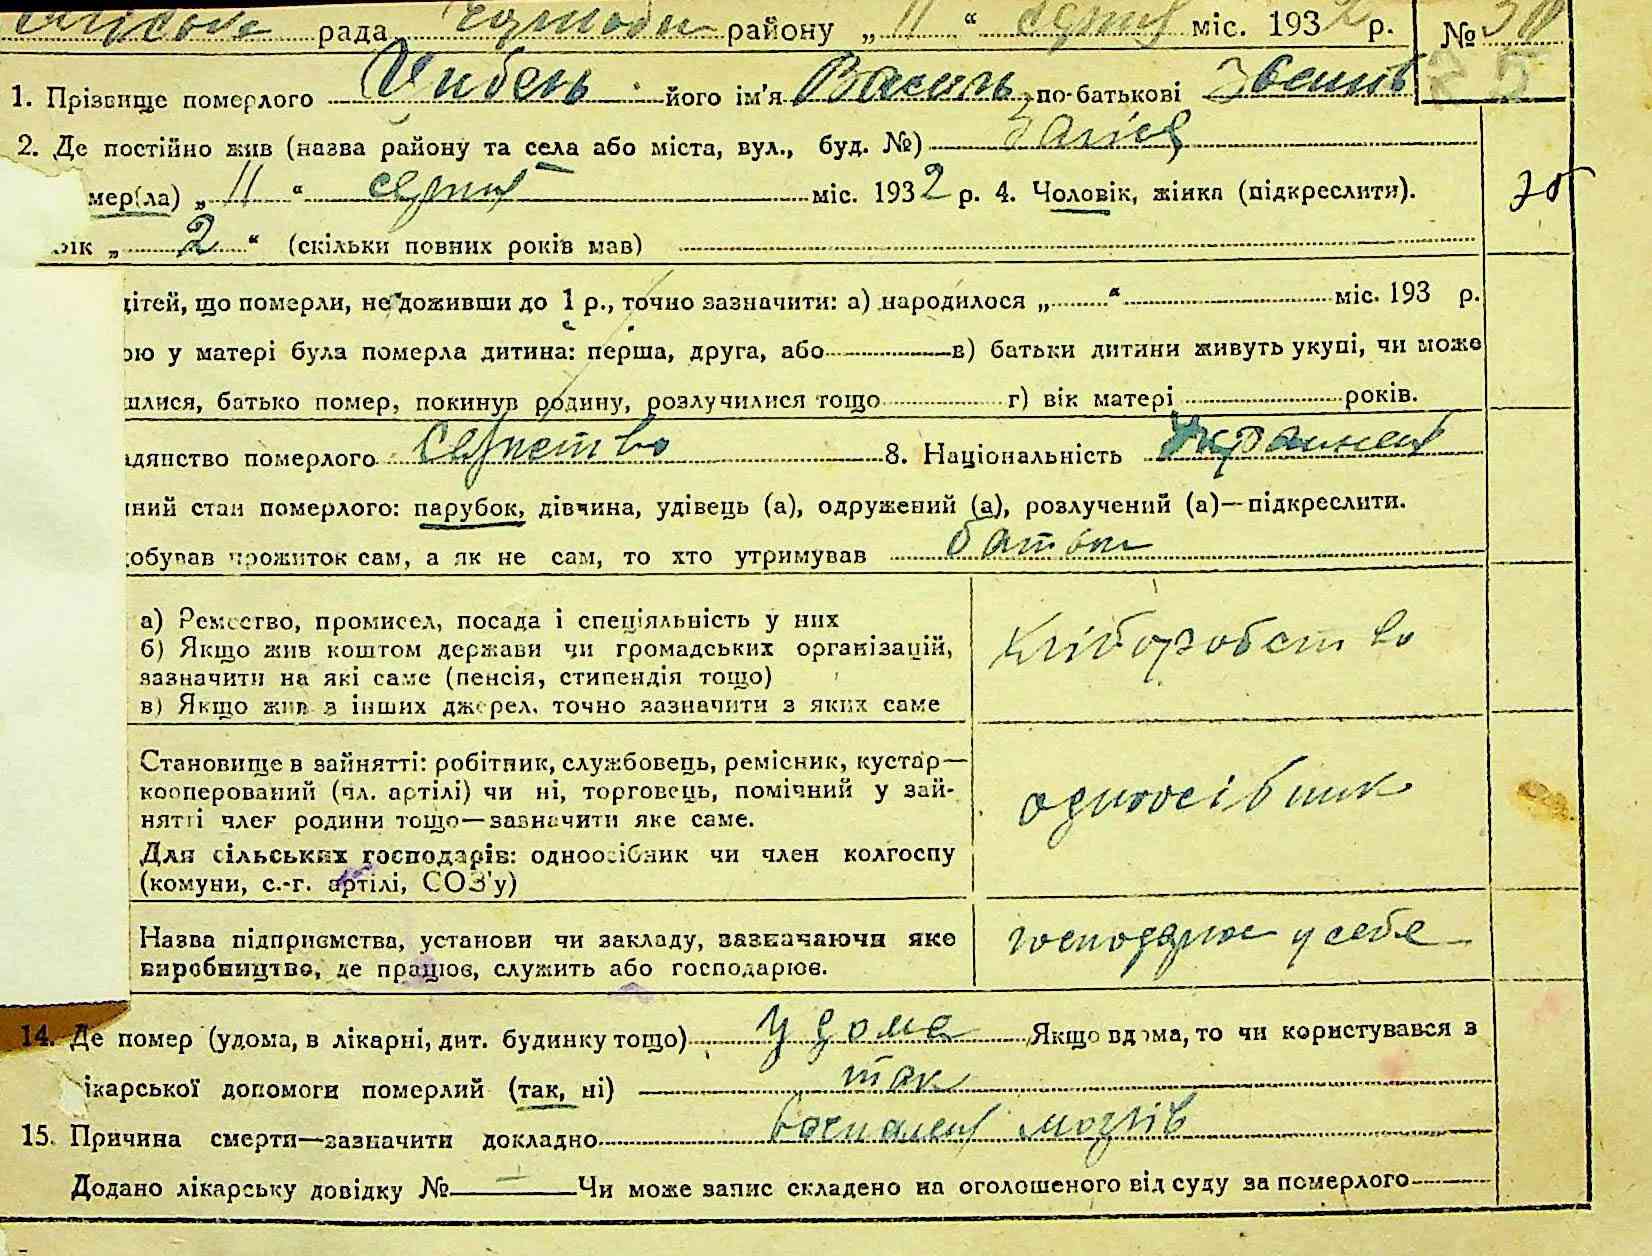 рада району „ 11 “ серпня міс. 1932 р. №
1. Прізвище померлого його ім'я Василь по-батькові
2. Де постійно жив (назва району та села або міста, вул., буд. №)
мер(ла) „ 11 “ серпня міс. 1932 р. 4. Чоловік, жінка (підкреслити).
ік „ 2 “ (скільки повних років мав)
дітей, що померли, не доживши до 1 р., точно зазначити: а) народилося „ “ міс. 193 р.
ою у матері була померла дитина: перша, друга, або в) батьки дитини живуть укупі, чи може
шлися, батько помер, покинув родину, розлучилися тощо г) вік матері років.
адянство померлого 8. Національність Українець
ний стан померлого: парубок, дівчина, удівець (а), одружений (а), розлучений (а)—підкреслити.
обував прожиток сам, а як не сам, то хто утримував батьки
а) Ремество, промисел, посада і спеціяльність у них хліборобство
б) Якщо жив коштом держави чи громадських організацій,
зазначити на які саме (пенсія, стипендія тощо)
в) Якщо жив з інших джерел, точно зазначити з яких саме
Становище в зайнятті: робітник, службовець, ремісник, кустар—
кооперований (чл. артілі) чи ні, торговець, помічний у зай-
нятті член родини тощо—зазначити яке саме. одноосібник
Для сільських господарів: одноосібник чи член колгоспу
(комуни, с.-г. артілі, СОЗ'у)
Назва підприємства, установи чи закладу, зазначаючи яке господарює у себе
виробництво, де працює, служить або господарює.
14. Де помер (удома, в лікарні, дит. будинку тощо) удома Якщо вдома, то чи користувався з
ікарської допомоги померлий (так, ні) так
15. Причина смерти—зазначити докладно воспалення мозгів
Додано лікарську довідку №— Чи може запис складено на оголошеного від суду за померлого